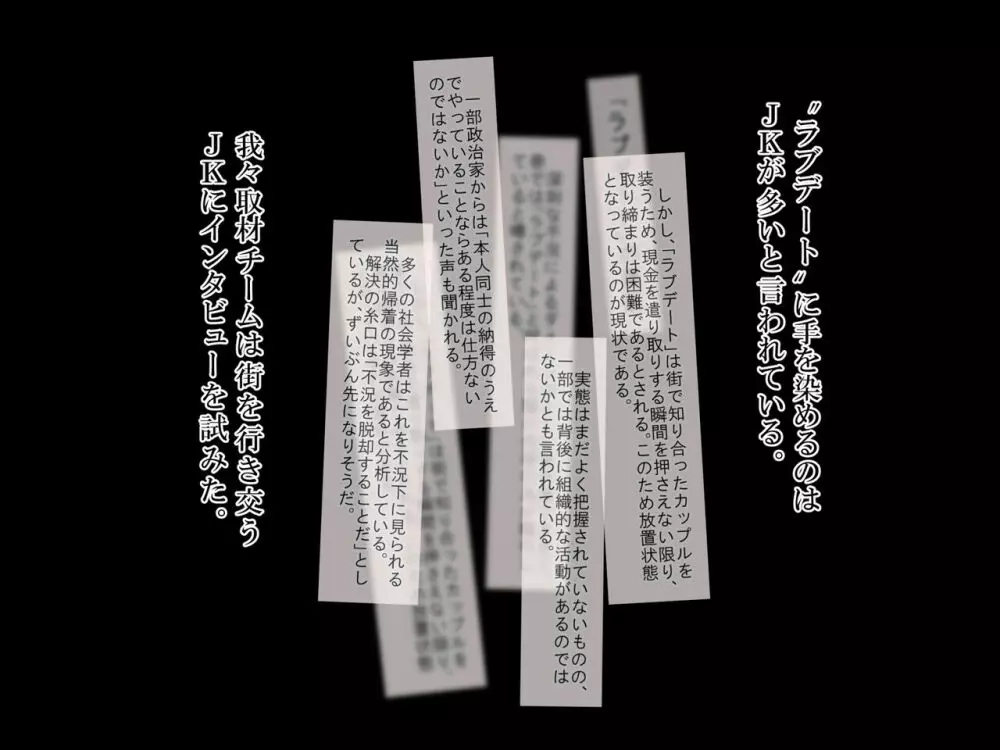 〝ラブデート〟に手を染めるのは
JKが多いと言われている。
「ラブ
しかし、「ラブデート」は街で知り合ったカップルを
装うため、現金を遣り取りする瞬間を押さえない限り、
取り締まりは困難であるとされる。このため放置状態
となっているのが現状である。
実態はまだよく把握されていないものの、
一部では背後に組織的な活動があるのでは
ないかとも言われている。
一部政治家からは「本人同士の納得のうえ
でやっていることならある程度は仕方ない
のではないか」といった声も聞かれる。
多くの社会学者はこれを不況下に見られる
当然的帰着の現象であると分析している。
解決の糸口は「不況を脱却することだ」とし
ているが、ずいぶん先になりそうだ。
我々取材チームは街を行き交う
JKにインタビューを試みた。